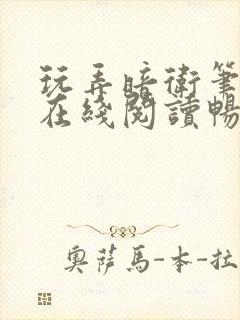 玩弄暗衛筆
在綫閱讀暢
奧薩馬-本-拉